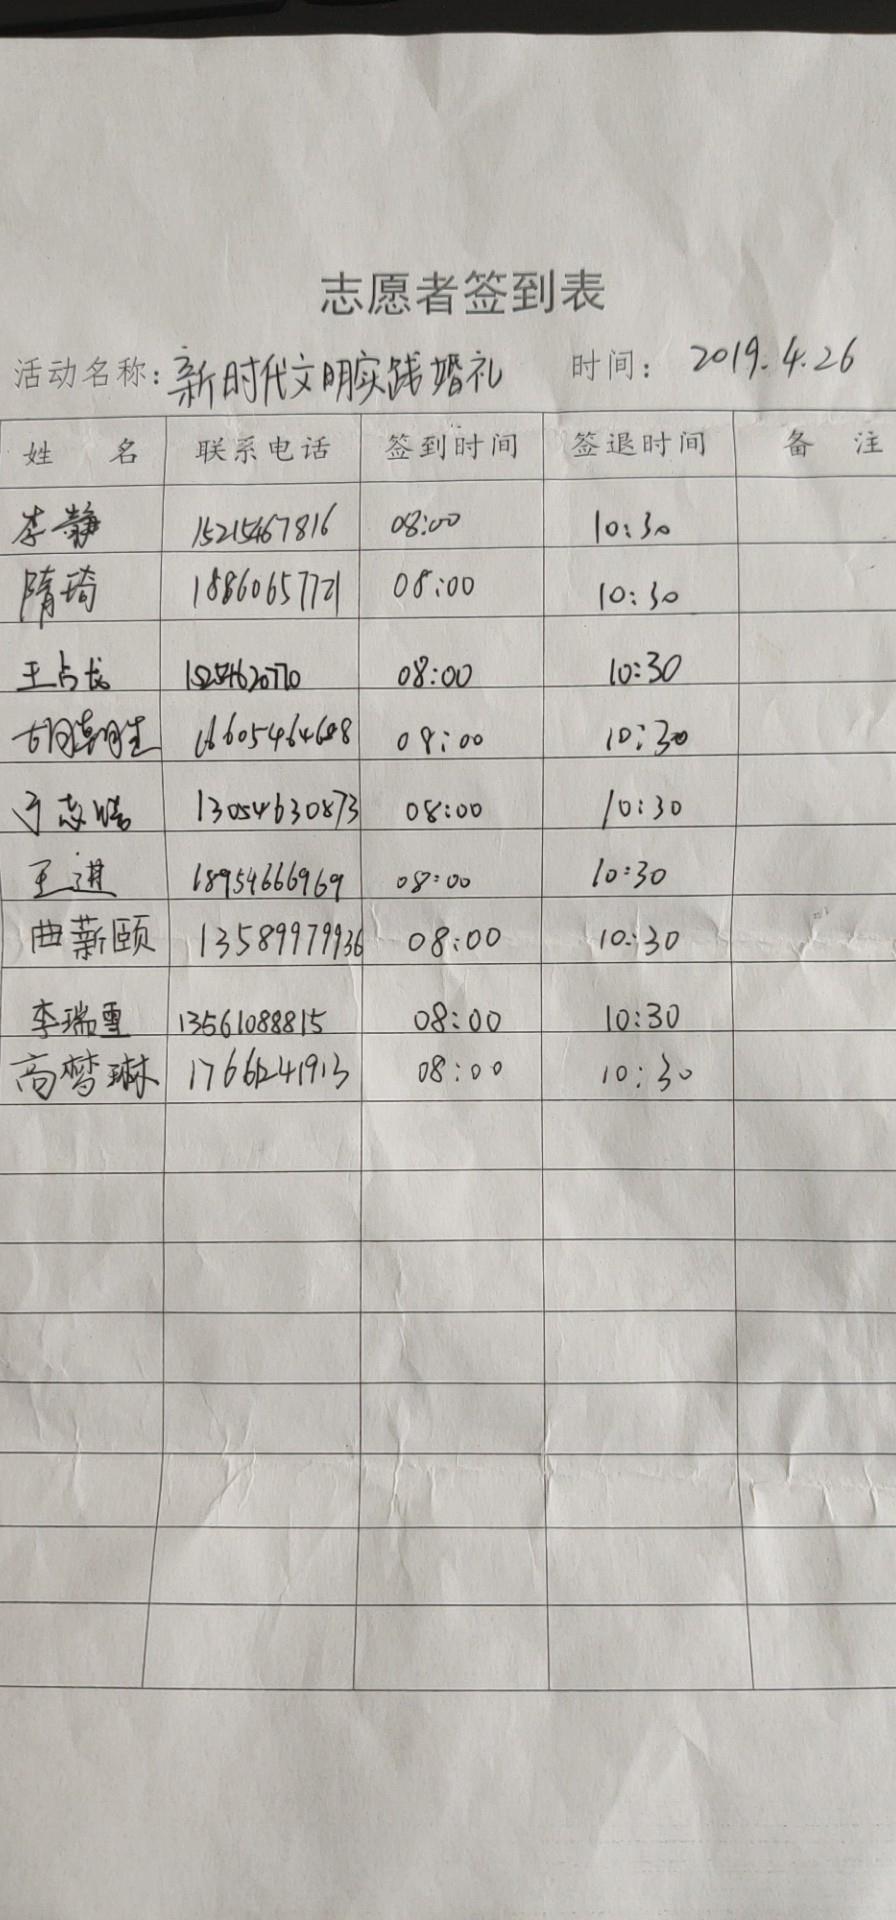 志愿者签到表
活动名称：新时代文明实践婚礼 时间：2019.4.26
姓 名 联系电话 签到时间 签退时间 备 注
李静 15215467816 08:00 10:30
隋琦 18860657721 08:00 10:30
王占龙 08:00 10:30
胡朝胜 08:00 10:30
于志皓 13054630873 08:00 10:30
王进 18954666969 08:00 10:30
曲薪颐 13589979936 08:00 10:30
李瑞雪 13561088815 08:00 10:30
高梦琳 17661241913 08:00 10:30